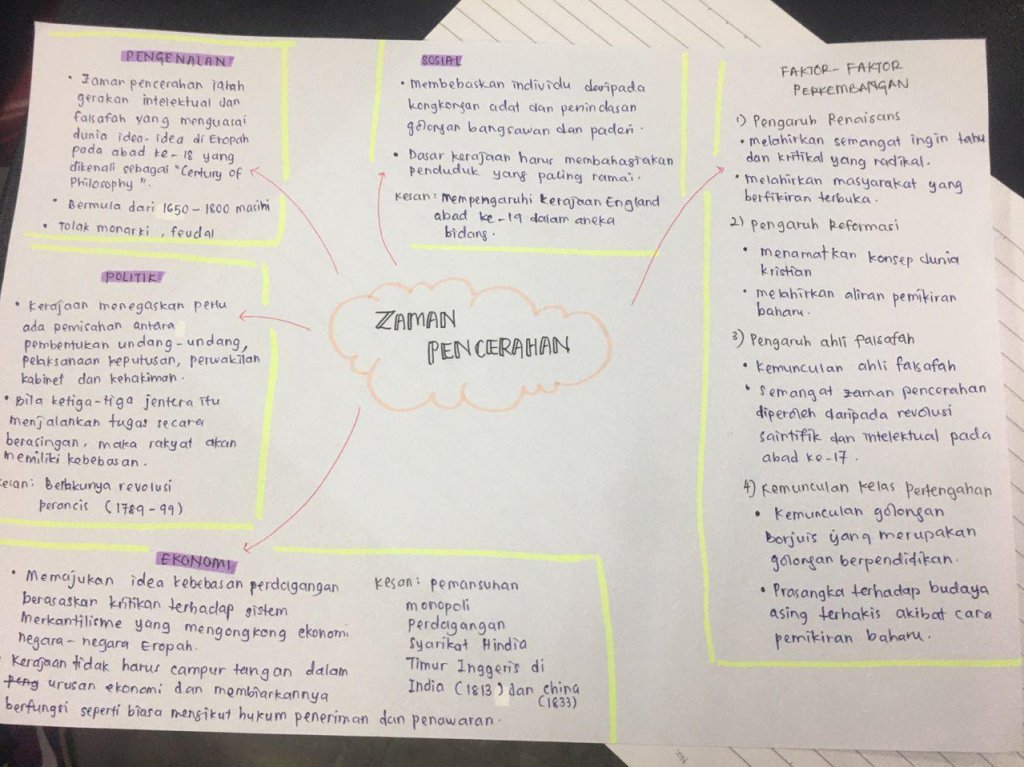 PENGENALAN
• Zaman pencerahan ialah
gerakan intelektual dan
falsafah yang menguasai
dunia idea-idea di Eropah
pada abad ke-18 yang
dikenali sebagai "Century of
Philosophy".
• Bermula dari 1650-1800 masihi
• Tolak monarki, feudal
SOSIAL
• membebaskan individu daripada
kongkongan adat dan penindasan
golongan bangsawan dan paderi.
• Dasar kerajaan harus membahagiakan
penduduk yang paling ramai.
Kesan: mempengaruhi kerajaan England
abad ke-19 dalam aneka
bidang.
FAKTOR-FAKTOR
PERKEMBANGAN
1) Pengaruh Renaisans
• melahirkan semangat ingin tahu
dan kritikal yang radikal.
• melahirkan masyarakat yang
berfikiran terbuka.
2) Pengaruh Reformasi
• menamatkan konsep dunia
kristian
• melahirkan aliran pemikiran
baharu.
3) Pengaruh ahli falsafah
• Kemunculan ahli falsafah
• Semangat zaman pencerahan
diperoleh daripada revolusi
saintifik dan intelektual pada
abad ke-17.
4) Kemunculan kelas pertengahan
• Kemunculan golongan
Borjuis yang merupakan
golongan berpendidikan.
• Prasangka terhadap budaya
asing terhakis akibat cara
pemikiran baharu.
ZAMAN
PENCERAHAN
POLITIK
• Kerajaan menegaskan perlu
ada pemisahan antara
pembentukan undang-undang,
pelaksanaan keputusan, perwakilan
kabinet dan kehakiman.
• Bila ketiga-tiga jentera itu
menjalankan tugas secara
berasingan, maka rakyat akan
memiliki kebebasan.
Kesan: Berlakunya revolusi
perancis (1789-99)
EKONOMI
• Memajukan idea kebebasan perdagangan
berasaskan kritikan terhadap sistem
Merkantilisme yang mengongkong ekonomi
negara-negara Eropah.
• Kerajaan tidak harus campur tangan dalam
urusan ekonomi dan membiarkannya
berfungsi seperti biasa mengikut hukum peneriman dan penawaran.
Kesan: Pemansuhan
monopoli
perdagangan
Syarikat Hindia
Timur Inggeris di
India (1813) dan china
(1833)
No.